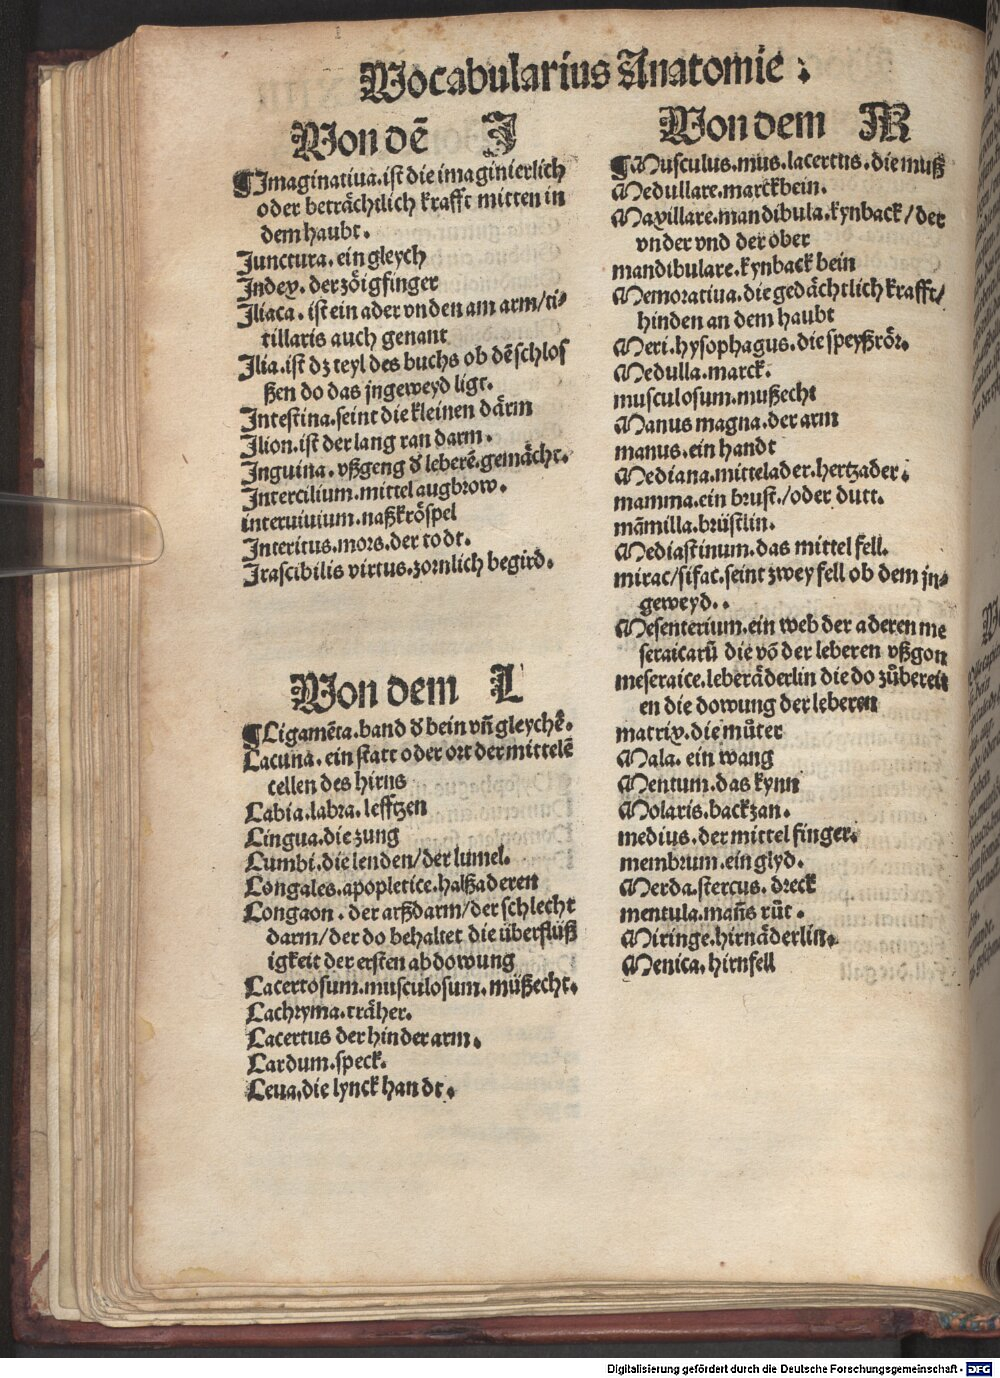 Vocabularius Anatomie :
Von dē J
¶Imaginatiua. ist die imaginierlich
oder beträchtlich krafft mitten in
dem haubt.
Junctura. ein gleych
Index. der zöigfinger
Iliaca. ist ein ader vnden am arm/ti-
tillaris auch genant
Ilia. ist dz teyl des buchs ob dē schlos
ßen do das jngeweyd ligt.
Intestina. seint die kleinen därm
Ilion. ist der lang ran darm.
Inguina. vßgeng d̕ leberē. gemächt.
Intercilium. mittel augbrow.
interuiuium. naßkröspel
Interitus. mors. der todt.
Irascibilis virtus. zornlich begird.
Von dem L
¶Ligamēta. band d̕ bein vn̄ gleychē.
Lacuna. ein statt oder ort der mittelē
cellen des hirns
Labia. labra. lefftzen
Lingua. die zung
Lumbi. die lenden/der lumel.
Longales. apopletice. halßaderen
Longaon. der arßdarm/der schlecht
darm/der do behaltet die überflüß
igkeit der ersten abdowung
Lacertosum. musculosum. müßecht.
Lachryma. träher.
Lacertus der hinder arm.
Lardum. speck.
Leua. die lynck handt.
Von dem M
¶Musculus. mus. lacertus. die muß
Medullare. marckbein.
Maxillare. mandibula. kynback/der
vnder vnd der ober
mandibulare. kynback bein
Memoratiua. die gedächtlich krafft/
hinden an dem haubt
Meri. hysophagus. die speyßrör.
Medulla. marck.
musculosum. mußecht
Manus magna. der arm
manus. ein handt
Mediana. mittelader. hertzader.
mamma. ein brust./oder dutt.
māmilla. brüstlin.
Mediastinum. das mittel fell.
mirac/sifac. seint zwey fell ob dem jn-
geweyd..
Mesenterium. ein web der aderen me
seraicarū die vō der leberen vßgon
meseraice. leberäderlin die do zůbereit
en die dowung der leberen
matrix. die můter
Mala. ein wang
Mentum. das kynn
Molaris. backzan.
medius. der mittel finger.
membrum. ein glyd.
Merda. stercus. dreck
mentula. man̄s růt.
Miringe. hirnäderlin.
Menica. hirnfell
Digitalisierung gefördert durch die Deutsche Forschungsgemeinschaft - DFG